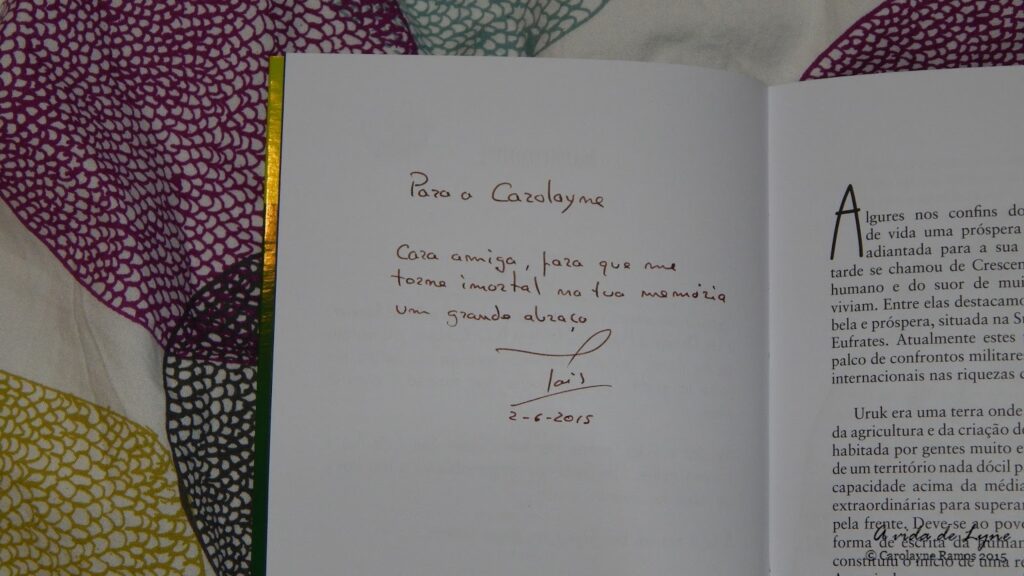 Para a Carolayne
Cara amiga, para que me
torne imortal na tua memória
um grande abraço
2-6-2015
Algures nos confins do
de vida uma próspera
adiantada para a sua
tarde se chamou de Crescen
humano e do suor de mui
viviam. Entre elas destacamo
bela e próspera, situada na
Eufrates. Atualmente estes
palco de confrontos militare
internacionais nas riquezas
Uruk era uma terra onde
da agricultura e da criação de
habitada por gentes muito e
de um território nada dócil p
capacidade acima da média
extraordinárias para supera
pela frente. Deve-se ao pov
forma de escrita da human
constitui o início de uma
A vida de Lyne
© Carolayne Ramos 2015